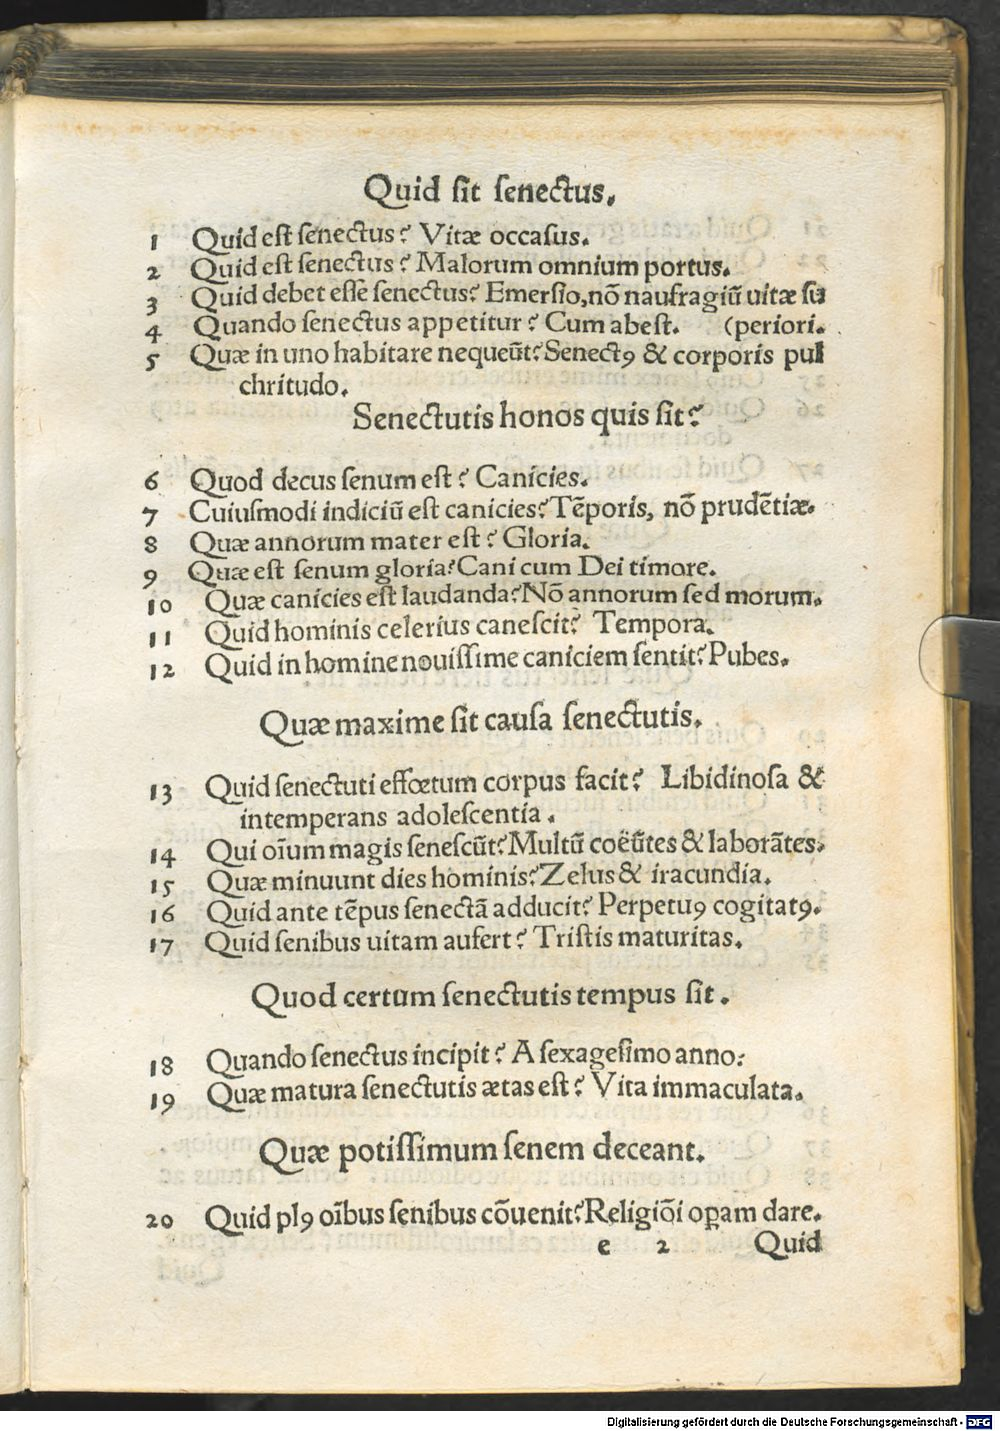 Quid sit senectus.
1 Quid est senectus? Vitæ occasus.
2 Quid est senectus? Malorum omnium portus.
3 Quid debet esse senectus? Emersio, nō naufragiū uitæ su
4 Quando senectus appetitur? Cum abest. (periori.
5 Quæ in uno habitare nequeūt? Senectꝰ & corporis pul
chritudo.
Senectutis honos quis sit?
6 Quod decus senum est? Canicies.
7 Cuiusmodi indiciū est canicies? Tēporis, nō prudētiæ.
8 Quæ annorum mater est? Gloria.
9 Quæ est senum gloria? Cani cum Dei timore.
10 Quæ canicies est laudanda? Nō annorum sed morum.
11 Quid hominis celerius canescit? Tempora.
12 Quid in homine nouissime caniciem sentit? Pubes.
Quæ maxime sit causa senectutis.
13 Quid senectuti effœtum corpus facit? Libidinosa &
intemperans adolescentia.
14 Qui oīum magis senescūt? Multū coëūtes & laborātes.
15 Quæ minuunt dies hominis? Zelus & iracundia.
16 Quid ante tēpus senectā adducit? Perpetuꝰ cogitatꝰ.
17 Quid senibus uitam aufert? Tristis maturitas.
Quod certum senectutis tempus sit.
18 Quando senectus incipit? A sexagesimo anno:
19 Quæ matura senectutis ætas est? Vita immaculata.
Quæ potissimum senem deceant.
20 Quid plꝰ oībus senibus cōuenit? Religiōi oꝑam dare.
e 2 Quid
Digitalisierung gefördert durch die Deutsche Forschungsgemeinschaft - DFG